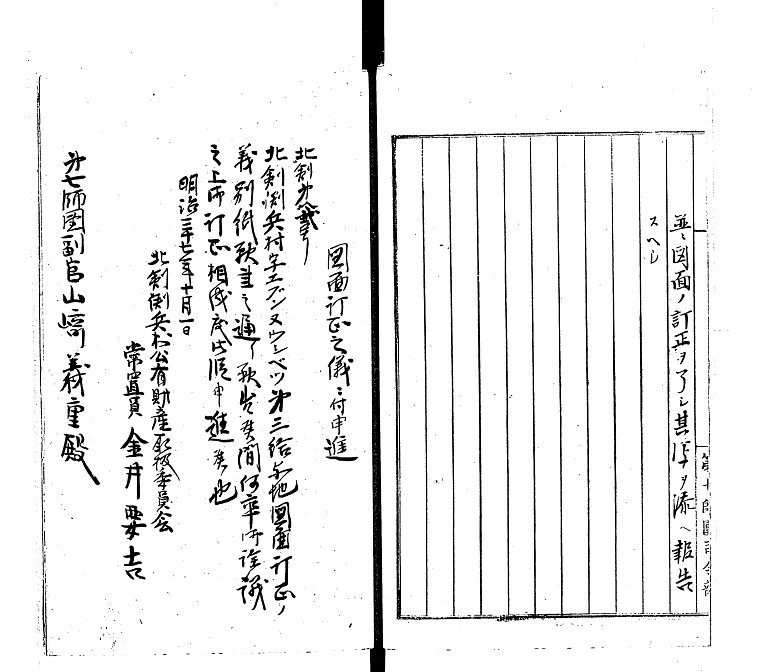 並ニ図面ノ訂正ヲ了シ其淳ヲ添ヘ報告
スヘシ
第七師團司令部
図面訂正之儀ニ付申進
北剣第貳号
北剣渕兵村字エブンヌウシベツ第三給与地図面訂正ノ
義別紙願書之通リ願出候間何卒御詮議
之上御訂正相成度此段申進候也
明治三十七年十月一日
北剣渕兵村公有財産取扱委員会
常置員 金井要吉
第七師団副官山﨑義重殿